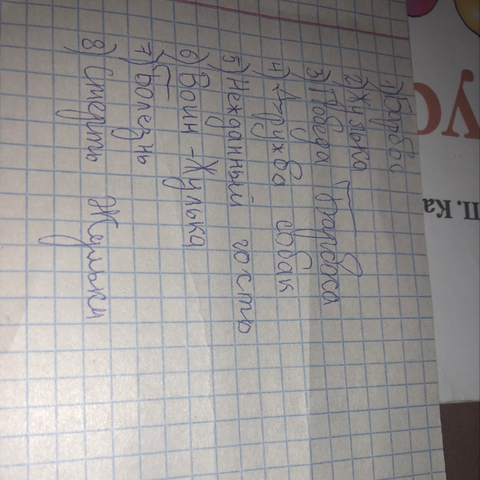 1) Барбос
2) Жулька
3) Победа Барбоса
4) Дружба собак
5) Нежданный гость
6) Воин - Жулька
7) Болезнь
8) Смерть Жульки
ус
П. Ка